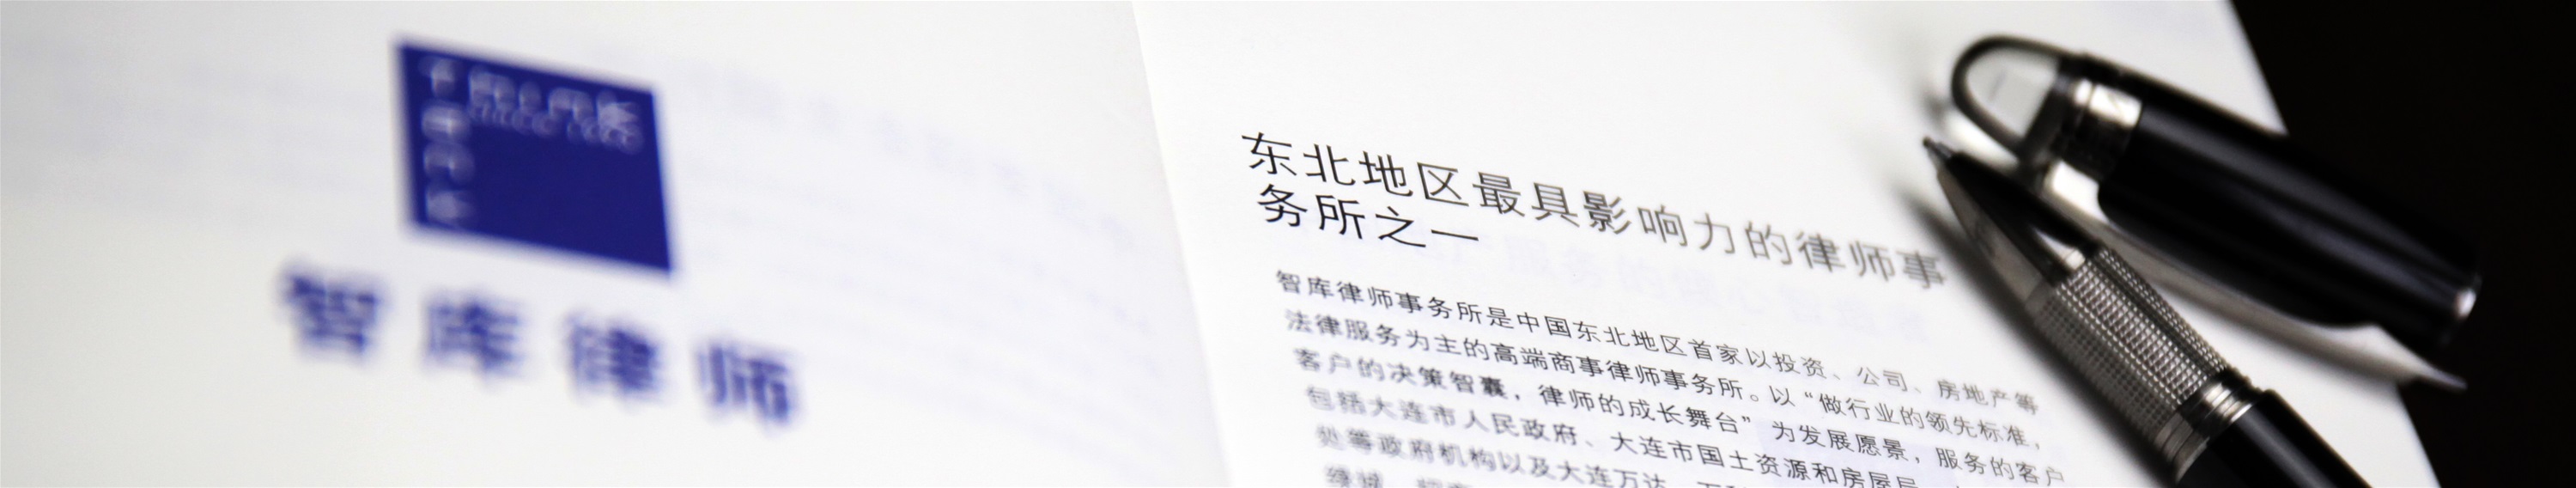 智库律师
东北地区最具影响力的律师事
务所之一
智库律师事务所是中国东北地区首家以投资、公司、房地产等
法律服务为主的高端商事律师事务所。以“做行业的领先标准，
客户的决策智囊，律师的成长舞台”为发展愿景，服务的客户
包括大连市人民政府、大连市国土资源和房屋局
处等政府机构以及大连万达
绿城